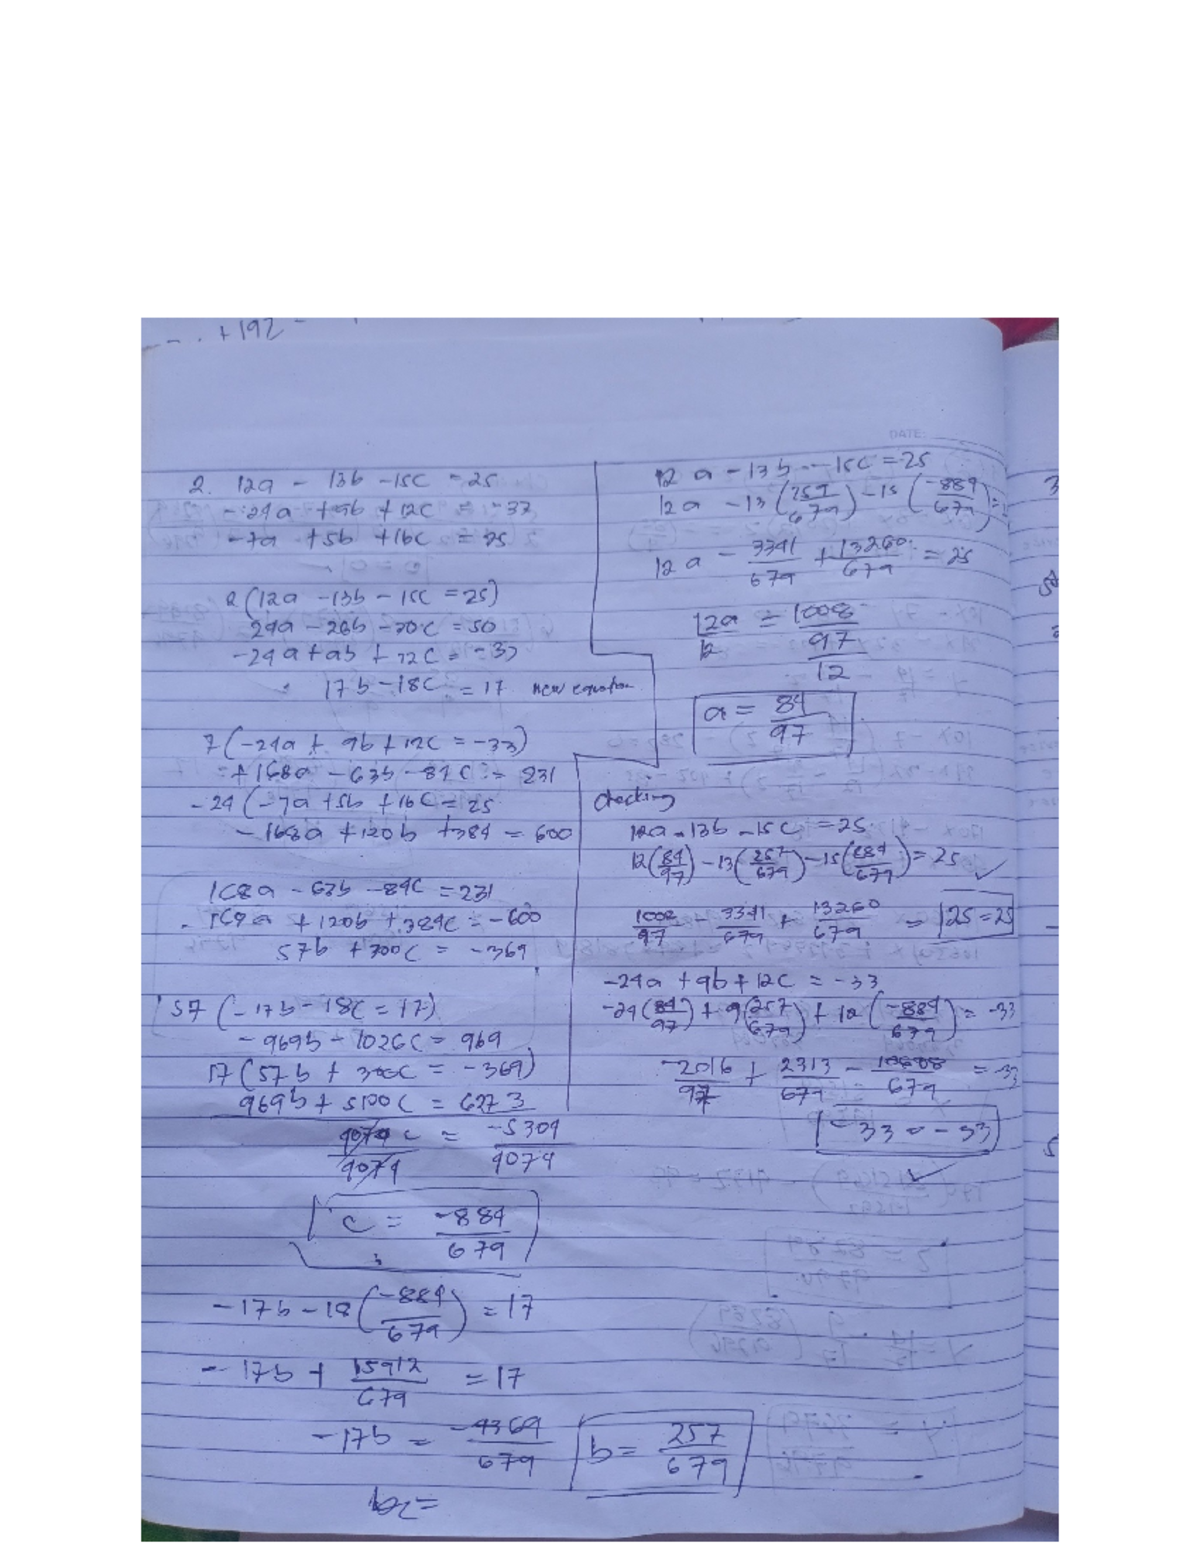 +192
DATE:
2. 12a - 13b - 15c = 25
-24a + 9b + 12c = -33
-7a + 5b + 16c = 25
2(12a - 13b - 15c = 25)
24a - 26b - 30c = 50
-24a + 9b + 12c = -33
17b - 18c = 17 new equation
7(-24a + 9b + 12c = -33)
= +168a - 63b - 84c = 231
-24(-7a + 5b + 16c = 25
- 168a + 120b + 384 = 600
168a - 63b - 84c = 231
- 168a + 120b + 384c = -600
57b + 300c = -369
57(-17b - 18c = 17)
- 969b - 1026c = 969
17(57b + 300c = -369)
969b + 5100c = 6273
4074c = -5304
4074 4074
c = -884
679
-17b - 18(-884/679) = 17
-17b + 15912/679 = 17
-17b = -4369/679
b = 257/679
12a - 13b - 15c = 25
12a - 13(257/679) - 15(-884/679) =
12a - 3341/679 + 13260/679 = 25
12a = 1008
12 97
12
a = 84/97
checking
12a - 13b - 15c = 25
12(84/97) - 13(257/679) - 15(884/679) = 25 ✓
1008/97 - 3341/679 + 13260/679 = 25 = 25
-24a + 9b + 12c = -33
-24(84/97) + 9(257/679) + 12(-884/679) = -33
-2016/97 + 2313/679 - 10608/679 = -33
-33 = -33
✓